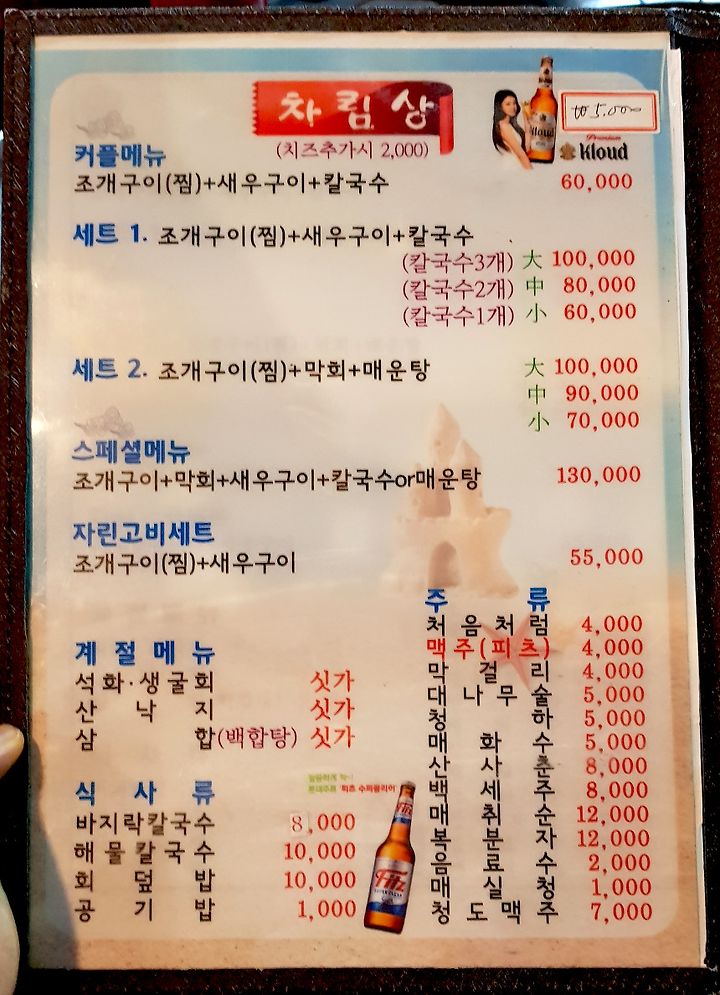 차림상
(치즈추가시 2,000)
₩5,000
Premium
Kloud
커플메뉴
조개구이(찜)+새우구이+칼국수 60,000
세트 1. 조개구이(찜)+새우구이+칼국수
(칼국수3개) 大 100,000
(칼국수2개) 中 80,000
(칼국수1개) 小 60,000
세트 2. 조개구이(찜)+막회+매운탕 大 100,000
中 90,000
小 70,000
스페셜메뉴
조개구이+막회+새우구이+칼국수or매운탕 130,000
자린고비세트
조개구이(찜)+새우구이 55,000
계절메뉴
석화·생굴회 싯가
산낙지 싯가
삼합(백합탕) 싯가
식사류
바지락칼국수 8,000
해물칼국수 10,000
회덮밥 10,000
공기밥 1,000
주류
처음처럼 4,000
맥주(피츠) 4,000
막걸리 4,000
대나무술 5,000
청하 5,000
매화수 5,000
산사춘 8,000
백세주 8,000
매취순 12,000
복분자 12,000
음료수 2,000
매실청 1,000
청도맥주 7,000
Fitz